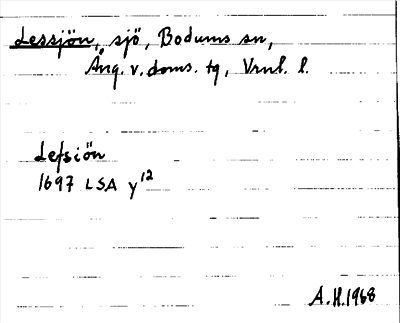 Lessjön, sjö, Bodums sn,
Ång. v. doms. tg, Vrnl. l.
Lefsiön
1697 LSA y12
A.H.1968